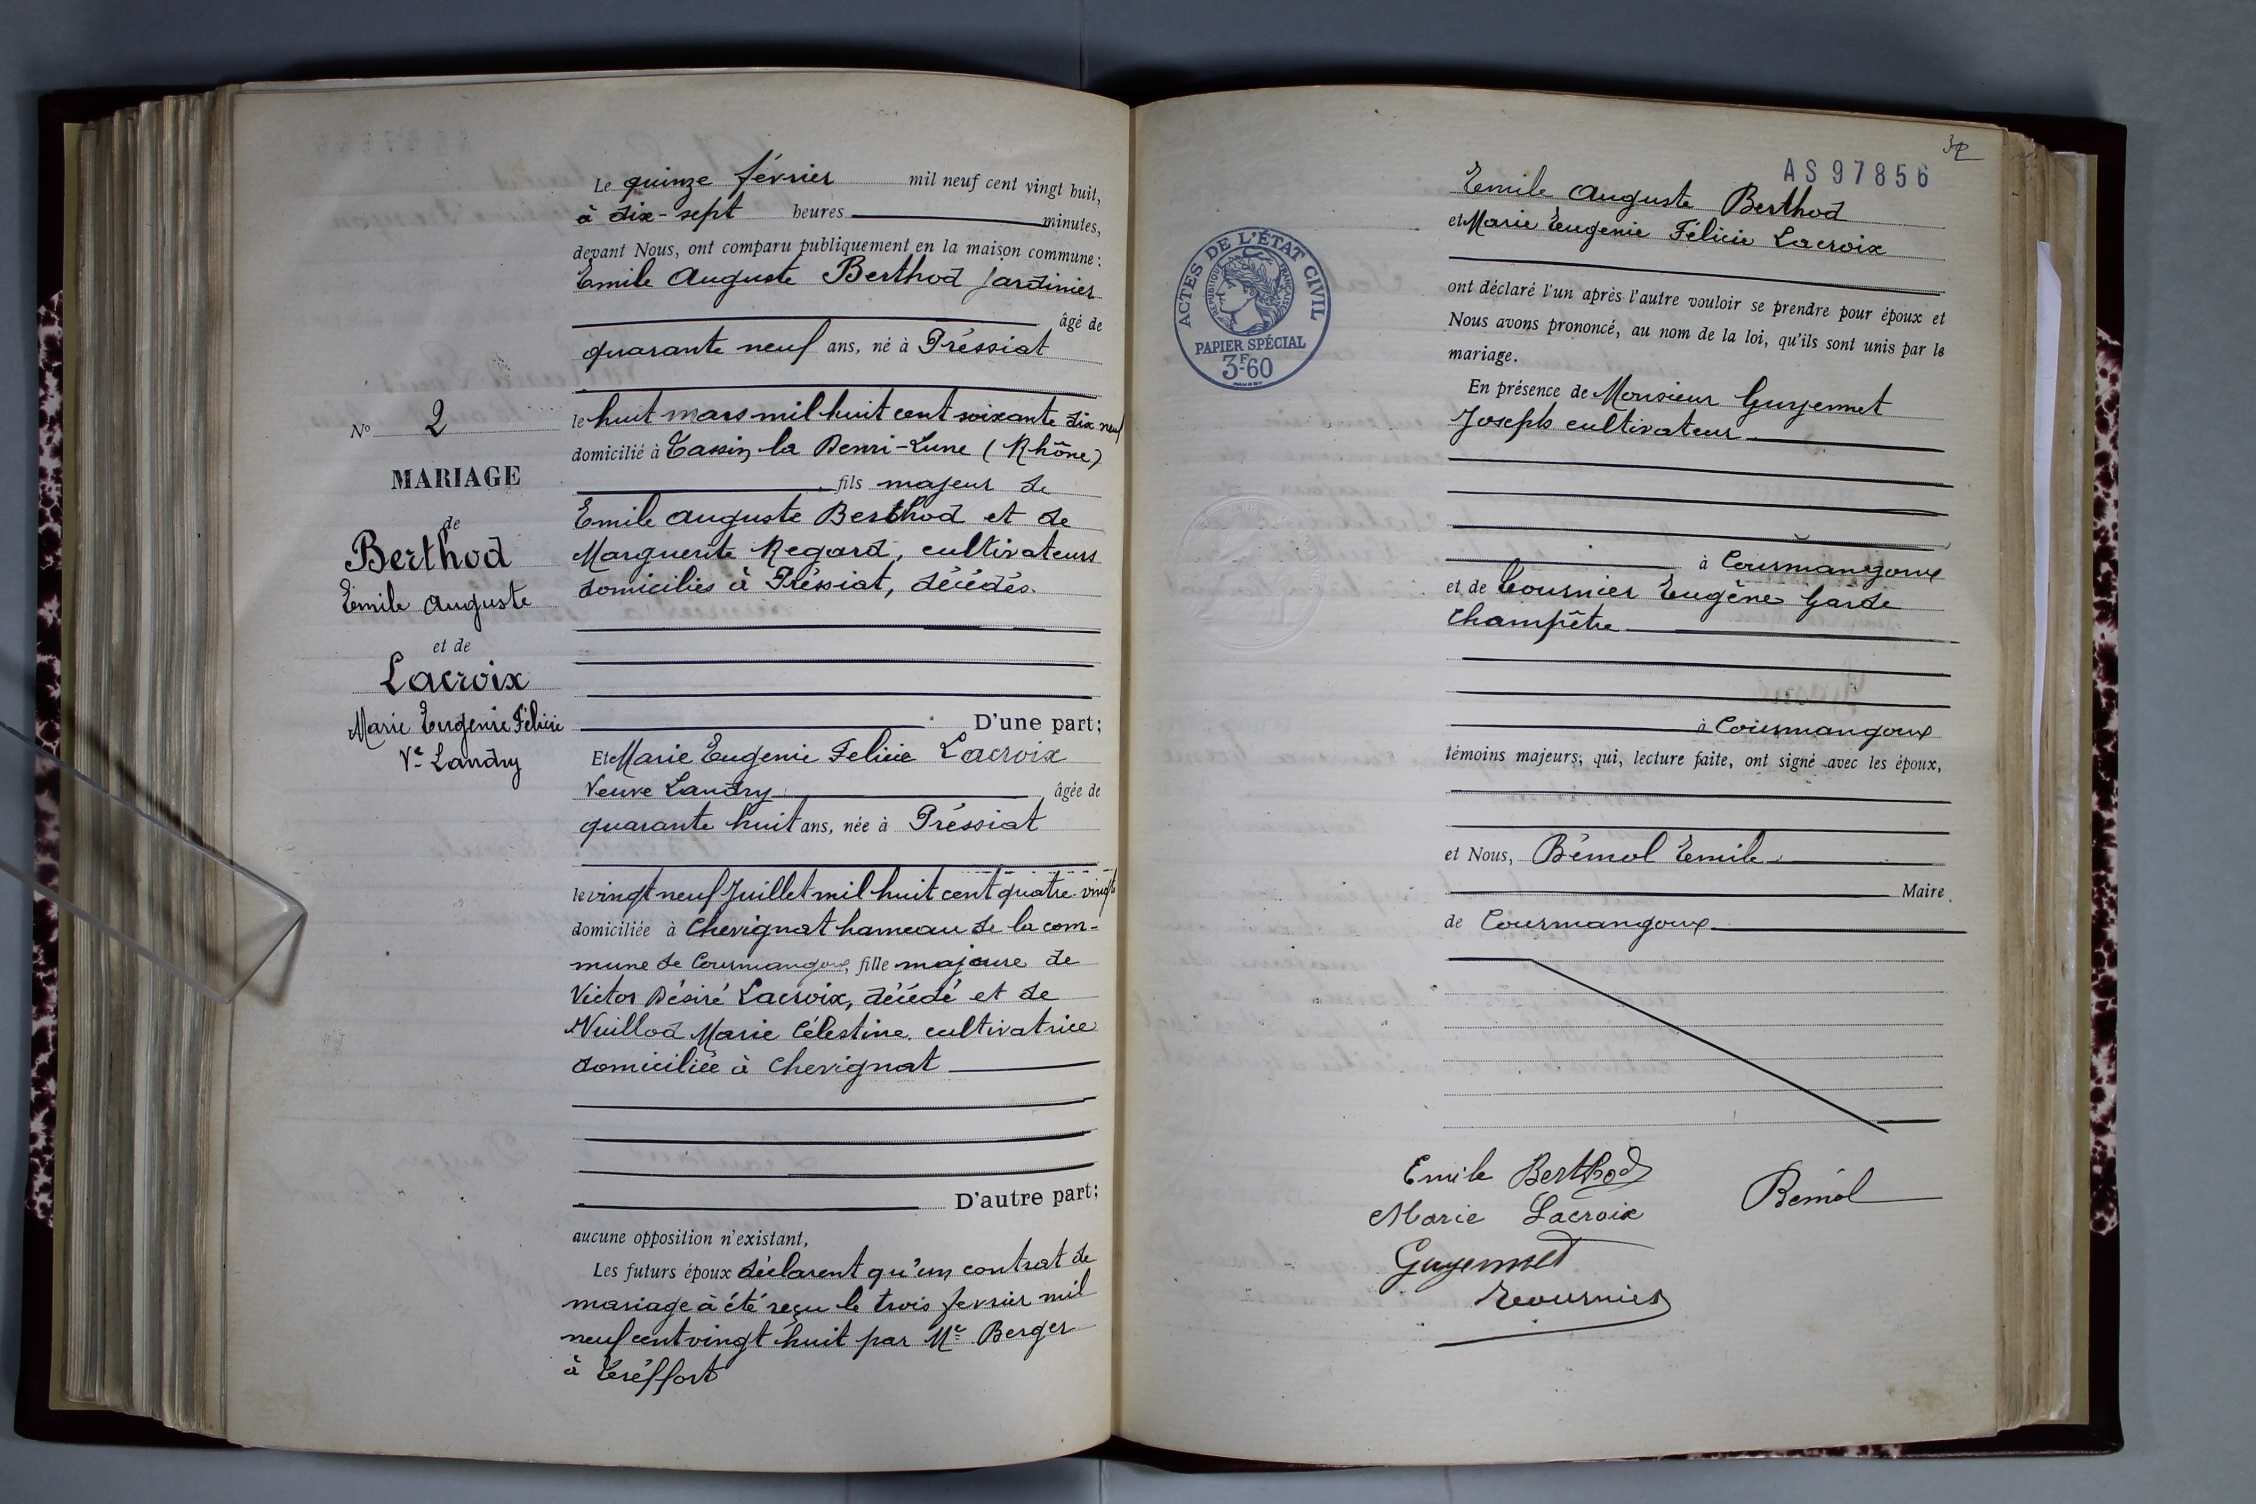 Le quinze février mil neuf cent vingt huit,
à dix-sept heures minutes,
devant Nous, ont comparu publiquement en la maison commune:
Emile Auguste Berthod jardinier
âgé de
quarante neuf ans, né à Préssiat
le huit mars mil huit cent soixante dix neuf
domicilié à Tassin la Demi-Lune (Rhône)
fils majeur de
Emile Auguste Berthod et de
Marguerite Regard, cultivateurs
domiciliés à Préssiat, décédés.
D'une part;
Et Marie Eugenie Felicie Lacroix
Veuve Landry âgée de
quarante huit ans, née à Préssiat
le vingt neuf Juillet mil huit cent quatre vingt
domiciliée à Chevignat hameau de la com-
mune de Courmangoux, fille majeure de
Victor Désiré Lacroix, décédé et de
Nuillod Marie Célestine cultivatrice
domiciliée à Chevignat
D'autre part;
aucune opposition n'existant,
Les futurs époux déclarent qu'un contrat de
mariage à été reçu le trois fevrier mil
neuf cent vingt huit par Me Berger
à Tréffort
No 2
MARIAGE
de
Berthod
Emile Auguste
et de
Lacroix
Marie Eugenie Félicie
Ve Landry
32
AS 97856
ACTES DE L'ÉTAT CIVIL
RÉPUBLIQUE FRANÇAISE
PAPIER SPÉCIAL
3F60
Emile Auguste Berthod
et Marie Eugenie Félicie Lacroix
ont déclaré l'un après l'autre vouloir se prendre pour époux et
Nous avons prononcé, au nom de la loi, qu'ils sont unis par le
mariage.
En présence de Monsieur Guyennet
Joseph cultivateur
à Courmangoux
et de Tournier Eugène Garde
Champêtre
à Courmangoux
témoins majeurs, qui, lecture faite, ont signé avec les époux,
et Nous, Bémol Emile
Maire
de Courmangoux
Emile Berthod
Marie Lacroix
Bémol
Guyennet
Tournier